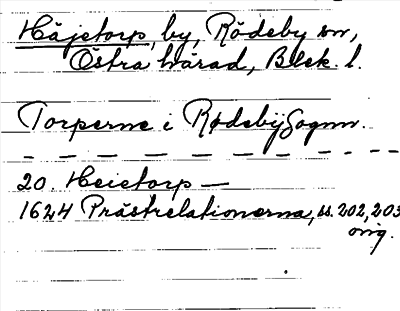 Häjetorp, by, Rödeby sn,
Östra härad, Blek. l.
Torperne i Rødebÿ Sognn.
20. Heietorp —
1624 Prästrelationerna, ss. 202, 203
orig.